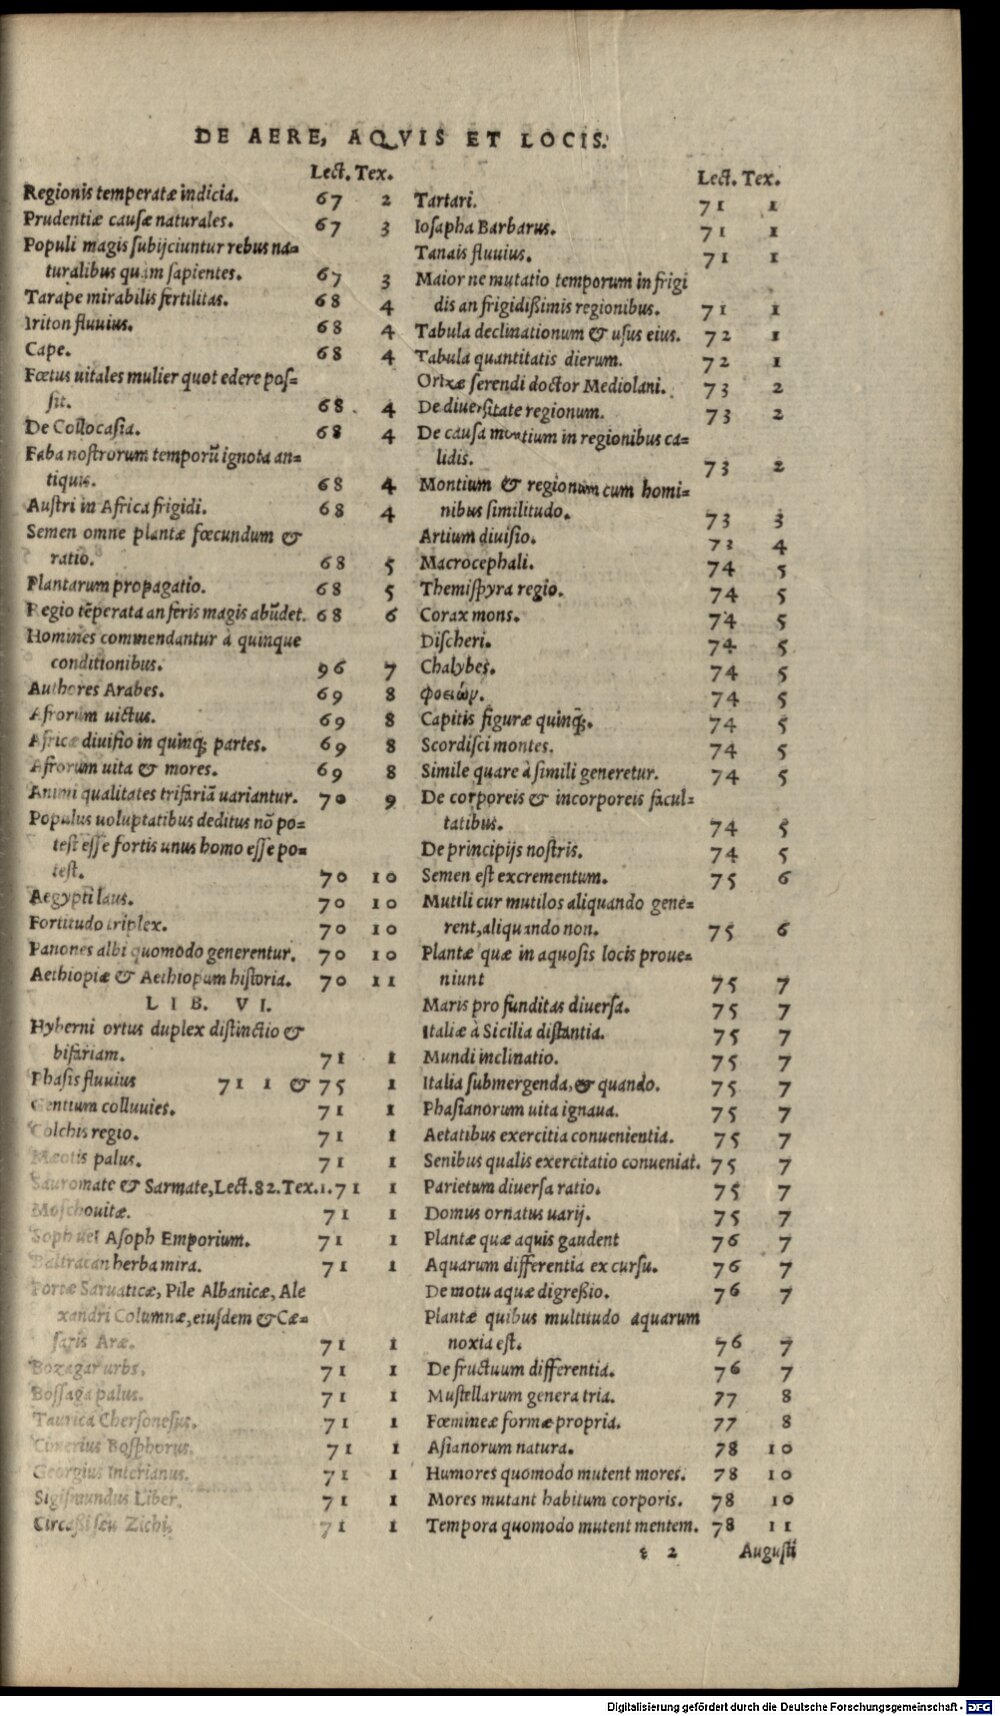 DE AERE, AQVIS ET LOCIS.
Lect. Tex.
Regionis temperatæ indicia. 67 2
Prudentiæ causæ naturales. 67 3
Populi magis subijciuntur rebus na=
turalibus quàm sapientes. 67 3
Tarape mirabilis fertilitas. 68 4
Triton fluuius. 68 4
Cape. 68 4
Fœtus uitales mulier quot edere pos=
sit. 68 4
De Collocasia. 68 4
Faba nostrorum temporũ ignota an=
tiquis. 68 4
Austri in Africa frigidi. 68 4
Semen omne plantæ fœcundum &
ratio. 68 5
Plantarum propagatio. 68 5
Regio tẽperata an feris magis abũdet. 68 6
Homines commendantur à quinque
conditionibus. 96 7
Authores Arabes. 69 8
Afrorum uictus. 69 8
Africæ diuisio in quinq; partes. 69 8
Afrorum uita & mores. 69 8
Animi qualitates trifariã uariantur. 70 9
Populus uoluptatibus deditus nõ po=
test esse fortis unus homo esse po=
test. 70 10
Aegypti laus. 70 10
Fortitudo triplex. 70 10
Panones albi quomodo generentur. 70 10
Aethiopiæ & Aethiopum historia. 70 11
LIB. VI.
Hyberni ortus duplex distinctio &
bifariam. 71 1
Phasis fluuius 71 1 & 75 1
Gentium colluuies. 71 1
Colchis regio. 71 1
Mæotis palus. 71 1
Sauromatæ & Sarmate, Lect. 82. Tex. 1. 71 1
Moschouitæ. 71 1
Soph uel Asoph Emporium. 71 1
Baltracan herba mira. 71 1
Portæ Saruaticæ, Pile Albanicæ, Ale
xandri Columnæ, eiusdem & Cæ=
saris Aræ. 71 1
Bozagar urbs. 71 1
Bossaga palus. 71 1
Taurica Chersonesus. 71 1
Cimerius Bosphorus. 71 1
Georgius Interianus. 71 1
Sigismundus Liber. 71 1
Circassi seu Zichi. 71 1
Lect. Tex.
Tartari. 71 1
Iosapha Barbarus. 71 1
Tanais fluuius. 71 1
Maior ne mutatio temporum in frigi
dis an frigidißimis regionibus. 71 1
Tabula declinationum & usus eius. 72 1
Tabula quantitatis dierum. 72 1
Orizæ serendi doctor Mediolani. 73 2
De diuersitate regionum. 73 2
De causa montium in regionibus ca=
lidis. 73 2
Montium & regionum cum homi=
nibus similitudo. 73 3
Artium diuisio. 73 4
Macrocephali. 74 5
Themispyra regio. 74 5
Corax mons. 74 5
Discheri. 74 5
Chalybes. 74 5
φοειώρ. 74 5
Capitis figuræ quinq;. 74 5
Scordisci montes. 74 5
Simile quare à simili generetur. 74 5
De corporeis & incorporeis facul=
tatibus. 74 5
De principijs nostris. 74 5
Semen est excrementum. 75 6
Mutili cur mutilos aliquando gene=
rent, aliquando non. 75 6
Plantæ quæ in aquosis locis proue=
niunt 75 7
Maris profunditas diuersa. 75 7
Italiæ à Sicilia distantia. 75 7
Mundi inclinatio. 75 7
Italia submergenda, & quando. 75 7
Phasianorum uita ignaua. 75 7
Aetatibus exercitia conuenientia. 75 7
Senibus qualis exercitatio conueniat. 75 7
Parietum diuersa ratio. 75 7
Domus ornatus uarij. 75 7
Plantæ quæ aquis gaudent 76 7
Aquarum differentia ex cursu. 76 7
De motu aquæ digreßio. 76 7
Plantæ quibus multitudo aquarum
noxia est. 76 7
De fructuum differentia. 76 7
Mustellarum genera tria. 77 8
Fœmineæ formæ propria. 77 8
Asianorum natura. 78 10
Humores quomodo mutent mores. 78 10
Mores mutant habitum corporis. 78 10
Tempora quomodo mutent mentem. 78 11
2 Augusti
Digitalisierung gefördert durch die Deutsche Forschungsgemeinschaft - DFG